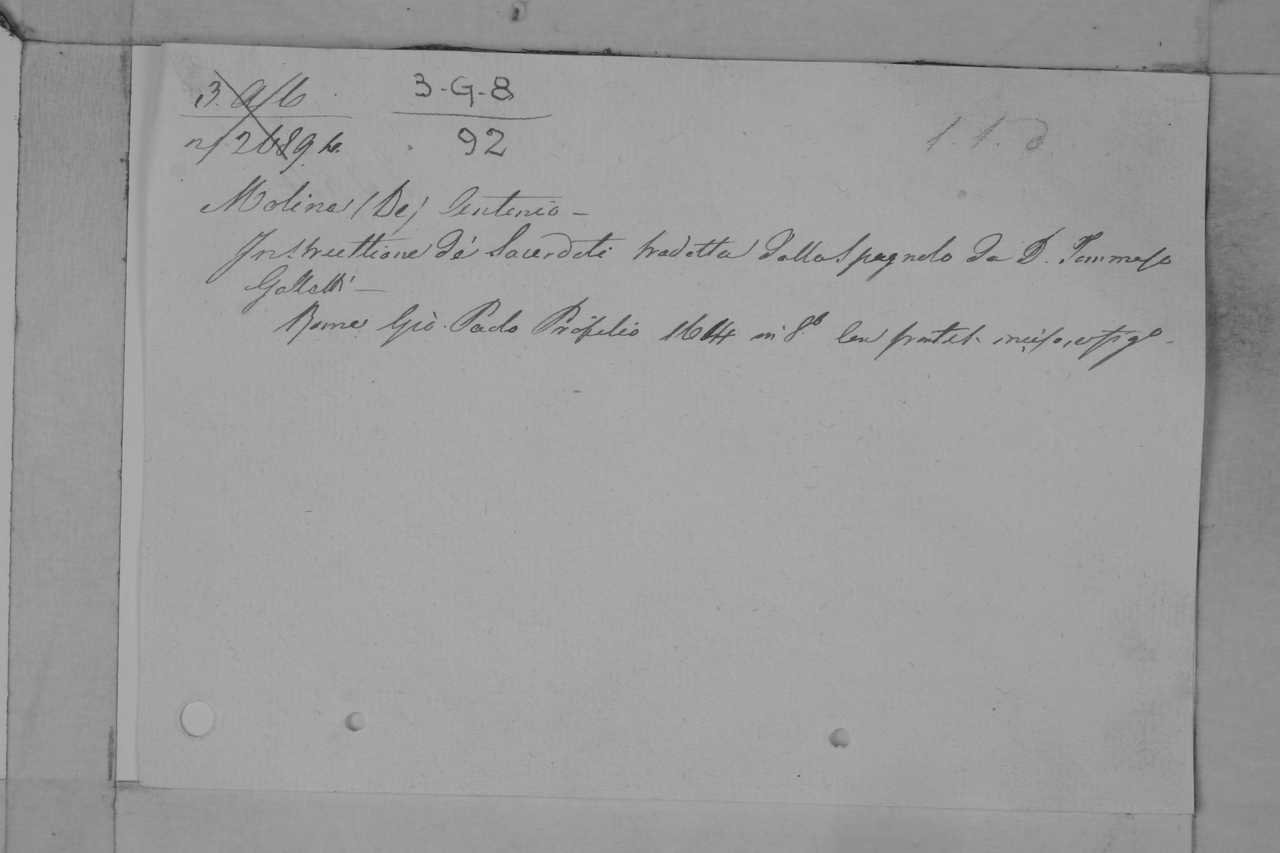 3. a/6 3-G-8
n/2689 b. 92
1.1.d
Molina (De) Antonio –
Instruttione de' Sacerdoti tradotta dallo Spagnolo da D. Tommaso
Galletti –
Roma Giò. Paolo Profilio 1644 in 8º Con frontesp. inciso,